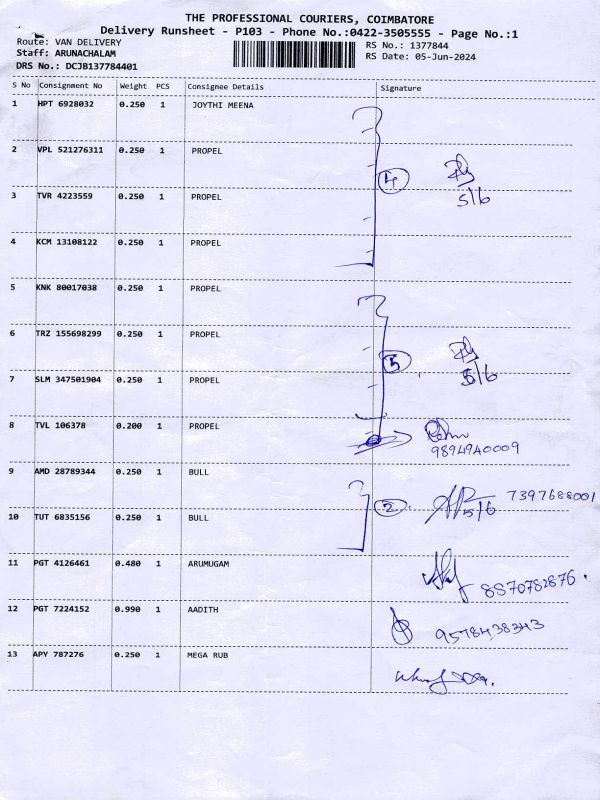 THE PROFESSIONAL COURIERS, COIMBATORE
Delivery Runsheet - P103 - Phone No.:0422-3505555 - Page No.:1
Route: VAN DELIVERY RS No.: 1377844
Staff: ARUNACHALAM RS Date: 05-Jun-2024
DRS No.: DCJB137784401
S No Consignment No Weight PCS Consignee Details Signature
1 HPT 6928032 0.250 1 JOYTHI MEENA
2 VPL 521276311 0.250 1 PROPEL
4
3 TVR 4223559 0.250 1 PROPEL 5/6
4 KCM 13108122 0.250 1 PROPEL
5 KNK 80017038 0.250 1 PROPEL
6 TRZ 155698299 0.250 1 PROPEL
5
7 SLM 347501904 0.250 1 PROPEL 5/6
8 TVL 106378 0.200 1 PROPEL
9894940009
9 AMD 28789344 0.250 1 BULL
2 5/6 7397688001
10 TUT 6835156 0.250 1 BULL
11 PGT 4126461 0.480 1 ARUMUGAM
8870782876.
12 PGT 7224152 0.990 1 AADITH 9578438343
13 APY 787276 0.250 1 MEGA RUB